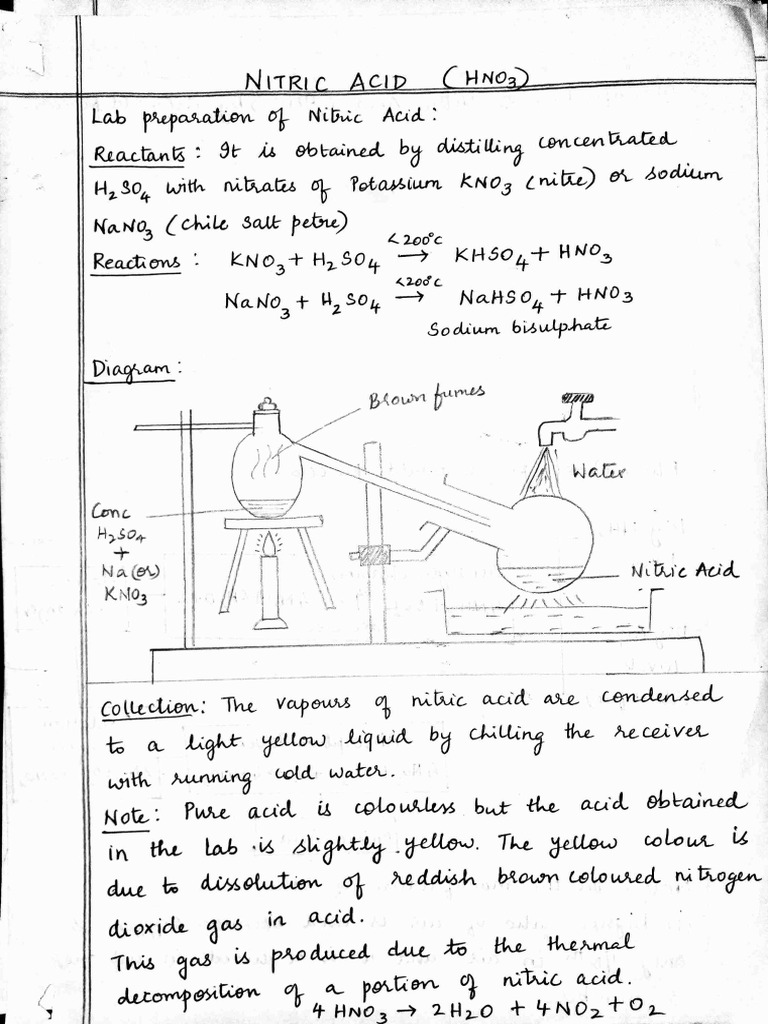 NITRIC ACID (HNO₃)
Lab preparation of Nitric Acid:
Reactants: It is obtained by distilling concentrated
H₂SO₄ with nitrates of Potassium KNO₃ (nitre) or sodium
NaNO₃ (chile salt petre)
Reactions: KNO₃ + H₂SO₄ <200°C → KHSO₄ + HNO₃
NaNO₃ + H₂SO₄ <200°C → NaHSO₄ + HNO₃
Sodium bisulphate
Diagram:
Brown fumes
Water
Conc
H₂SO₄
+
Na (or)
KNO₃
Nitric Acid
Collection: The vapours of nitric acid are condensed
to a light yellow liquid by chilling the receiver
with running cold water.
Note: Pure acid is colourless but the acid obtained
in the lab is slightly yellow. The yellow colour is
due to dissolution of reddish brown coloured nitrogen
dioxide gas in acid.
This gas is produced due to the thermal
decomposition of a portion of nitric acid.
4 HNO₃ → 2H₂O + 4NO₂ + O₂